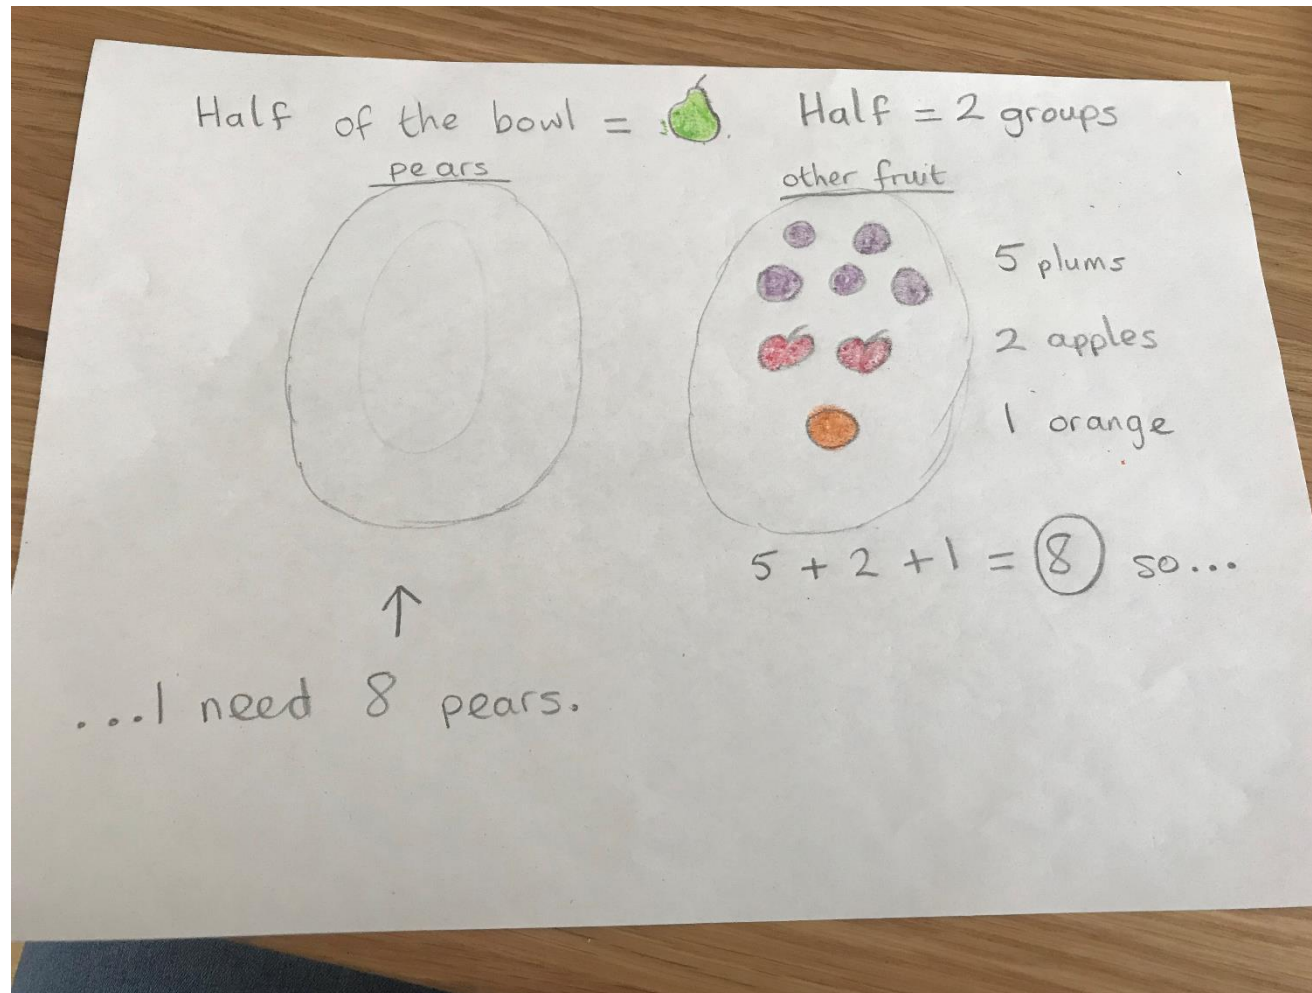 Half of the bowl =
Half = 2 groups
pears
other fruit
5 plums
2 apples
1 orange
5 + 2 + 1 = 8 so...
...I need 8 pears.